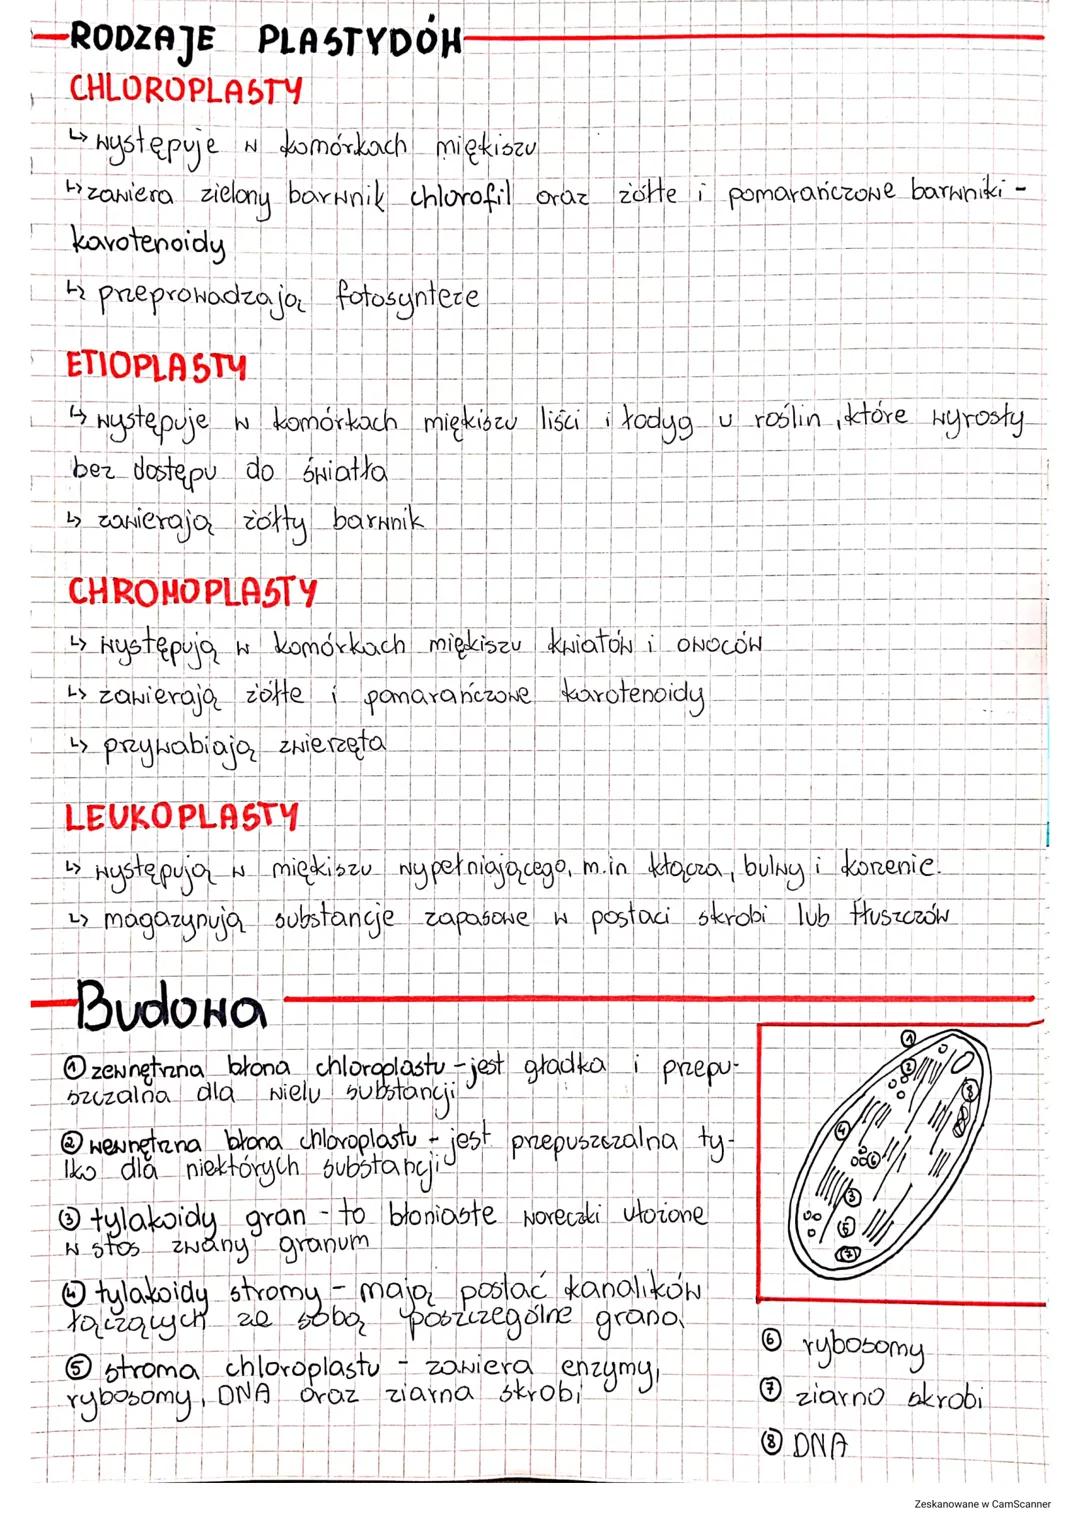 RODZAJE PLASTYDÓW
CHLOROPLASTY
↳ występuje w komórkach miękiszu
↳ zawiera zielony barwnik chlorofil oraz żółte i pomarańczowe barwniki -
karotenoidy
↳ przeprowadzają fotosyntezę
ETIOPLASTY
↳ występuje w komórkach miękiszu liści i łodyg u roślin, które wyrosły
bez dostępu do światła
↳ zawierają żółty barwnik
CHROMOPLASTY
↳ występują w komórkach miękiszu kwiatów i owoców
↳ zawierają żółte i pomarańczowe karotenoidy
↳ przywabiają zwierzęta
LEUKOPLASTY
↳ występują w miękiszu wypełniającego, m.in kłącza, bulwy i korzenie.
↳ magazynują substancje zapasowe w postaci skrobi lub tłuszczów
Budowa
① zewnętrzna błona chloroplastu - jest gładka i przepu-
szczalna dla wielu substancji
② wewnętrzna błona chloroplastu - jest przepuszczalna ty-
lko dla niektórych substancji
③ tylakoidy gran - to błoniaste woreczki ułożone
w stos zwany granum
④ tylakoidy stromy - mają postać kanalików
łączących ze sobą poszczególne grana
⑤ stroma chloroplastu - zawiera enzymy,
rybosomy, DNA oraz ziarna skrobi
①
②
⑧
④
⑥
③
⑤
⑦
⑥ rybosomy
⑦ ziarno skrobi
⑧ DNA
Zeskanowane w CamScanner